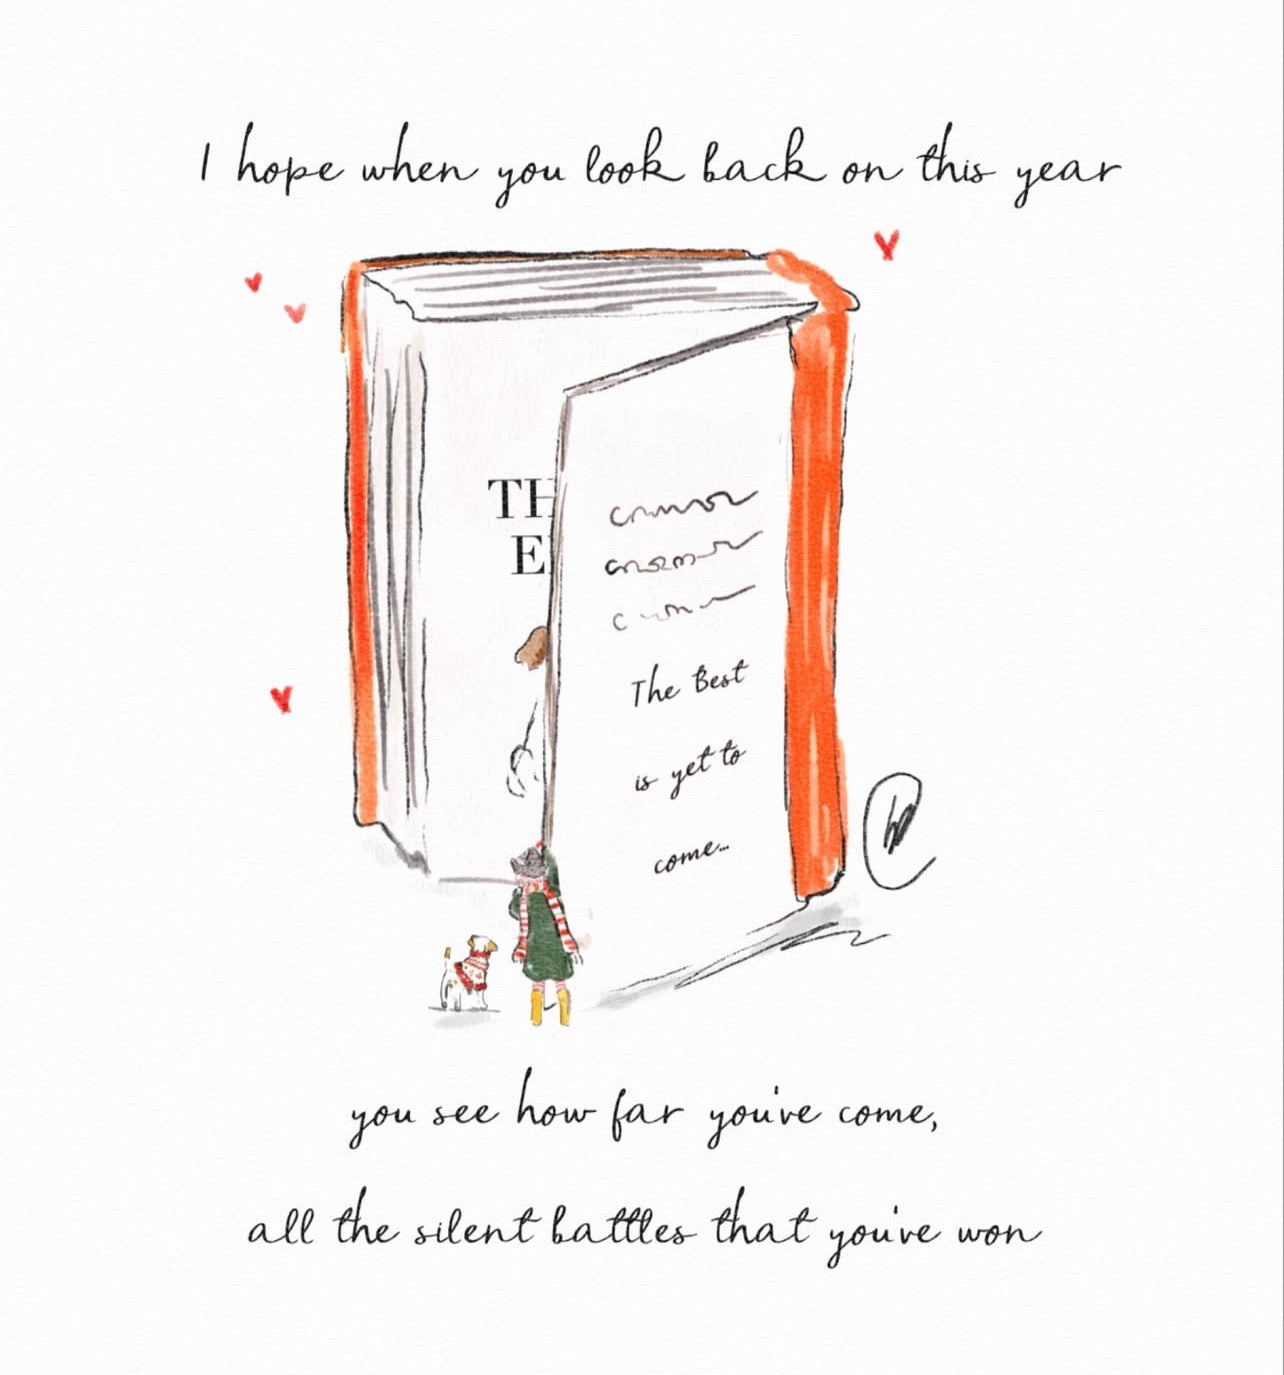 I hope when you look back on this year
TH
E
The Best
is yet to
come...
you see how far you've come,
all the silent battles that you've won